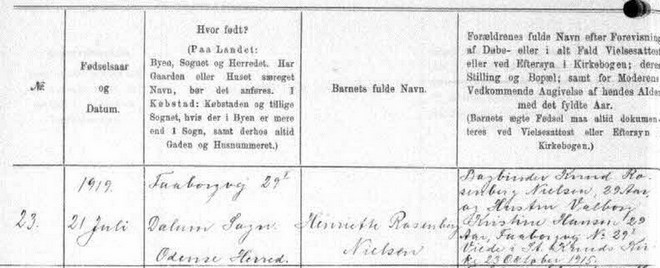 №
Fødselsaar
og
Datum.
Hvor født?
(Paa Landet:
Byen, Sognet og Herredet. Har
Gaarden eller Huset særeget
Navn, bør det anføres. I
Købstad: Købstaden og tillige
Sognet, hvis der i Byen er mere
end 1 Sogn, samt derhos altid
Gaden og Husnummeret.)
Barnets fulde Navn.
Forældrenes fulde Navn efter Forevisning
af Døbe- eller i alt Fald Vielsesattest
eller ved Eftersyn i Kirkebogen; deres
Stilling og Bopæl; samt for Moderens
Vedkommende Angivelse af hendes Alder
med det fyldte Aar.
(Barnets ægte Fødsel maa altid dokumen-
teres ved Vielsesattest eller Eftersyn
Kirkebogen.)
23.
1919.
21 Juli
Faaborgvej 29
Dalum Sogn.
Odense Herred.
Henriette Rosenberg
Nielsen
Bogbinder Knud Ro-
senberg Nielsen, 29 Aar,
og Hustru Valborg
Kristine Hansen 29
Aar, Faaborgvej № 29
Viede i St. Knuds Kir-
ke 23 Oktober 1915.